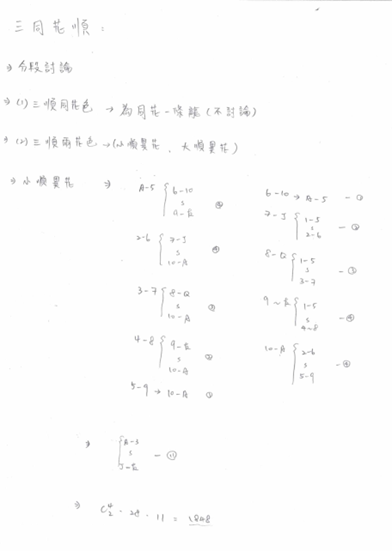 三同花順：
⇒ 分段討論
⇒ (1) 三順同花色 → 為同花一條龍 (不討論)
⇒ (2) 三順兩花色 → (小順異花、大順異花)
⇒ 小順異花 ⇒
A-5 { 6-10 s Q-K
2-6 { 7-J s 10-A
3-7 { 8-Q s 10-A ③
4-8 { 9-K s 10-A ②
5-9 → 10-A ①
6-10 → A-5 — ①
7-J { 1-5 s 2-6 — ②
8-Q { 1-5 s 3-7 — ③
9~K { 1-5 s 4-8 — ④
10-A { 2-6 s 5-9 — ④
⇒ { A-3 s J-K — ⑪
⇒ C⁴₂ · 28 · 11 = 1848